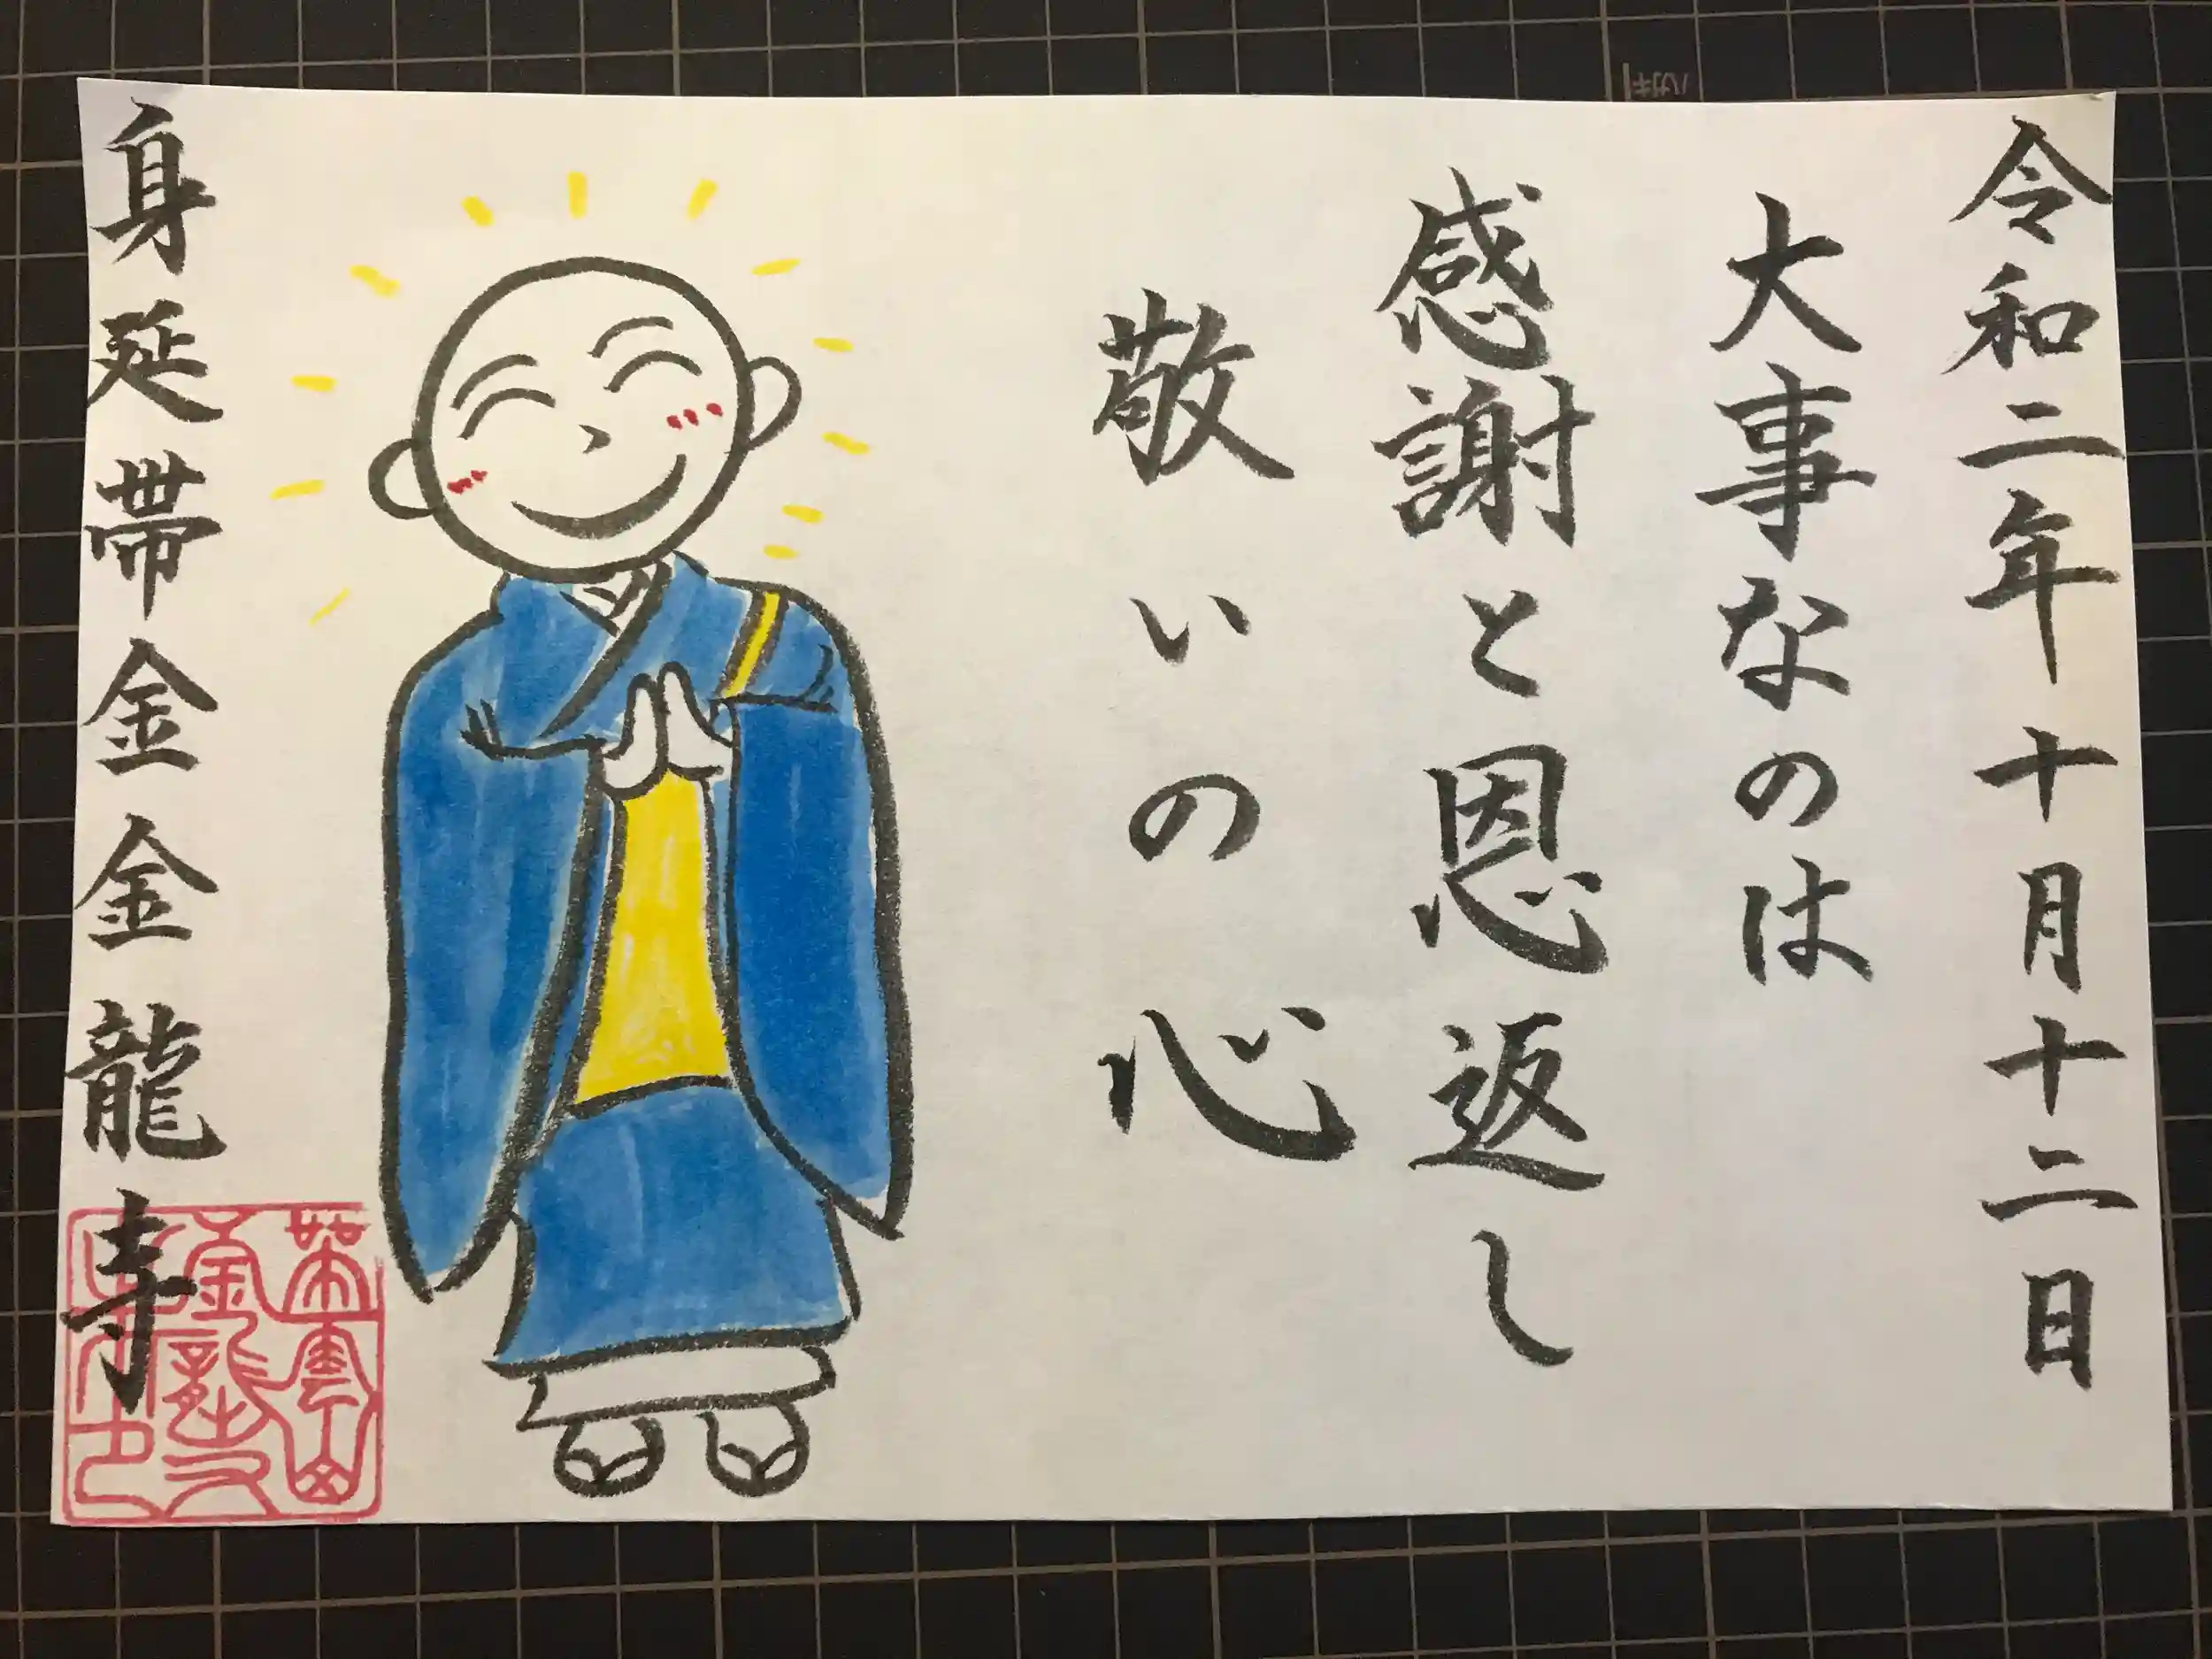 令和二年十月十二日
大事なのは
感謝と恩返し
敬いの心
身延帯金金龍寺
ハガキ